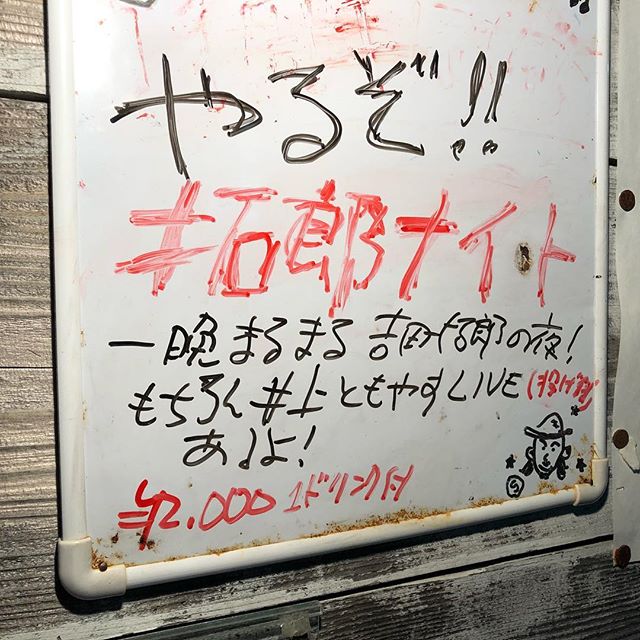 やるぞ!!
拓郎ナイト
一晩まるまる 吉田拓郎の夜!
もちろん 井上ともやすLIVE (投げ銭)
あるよ!
¥2.000 1ドリンク付